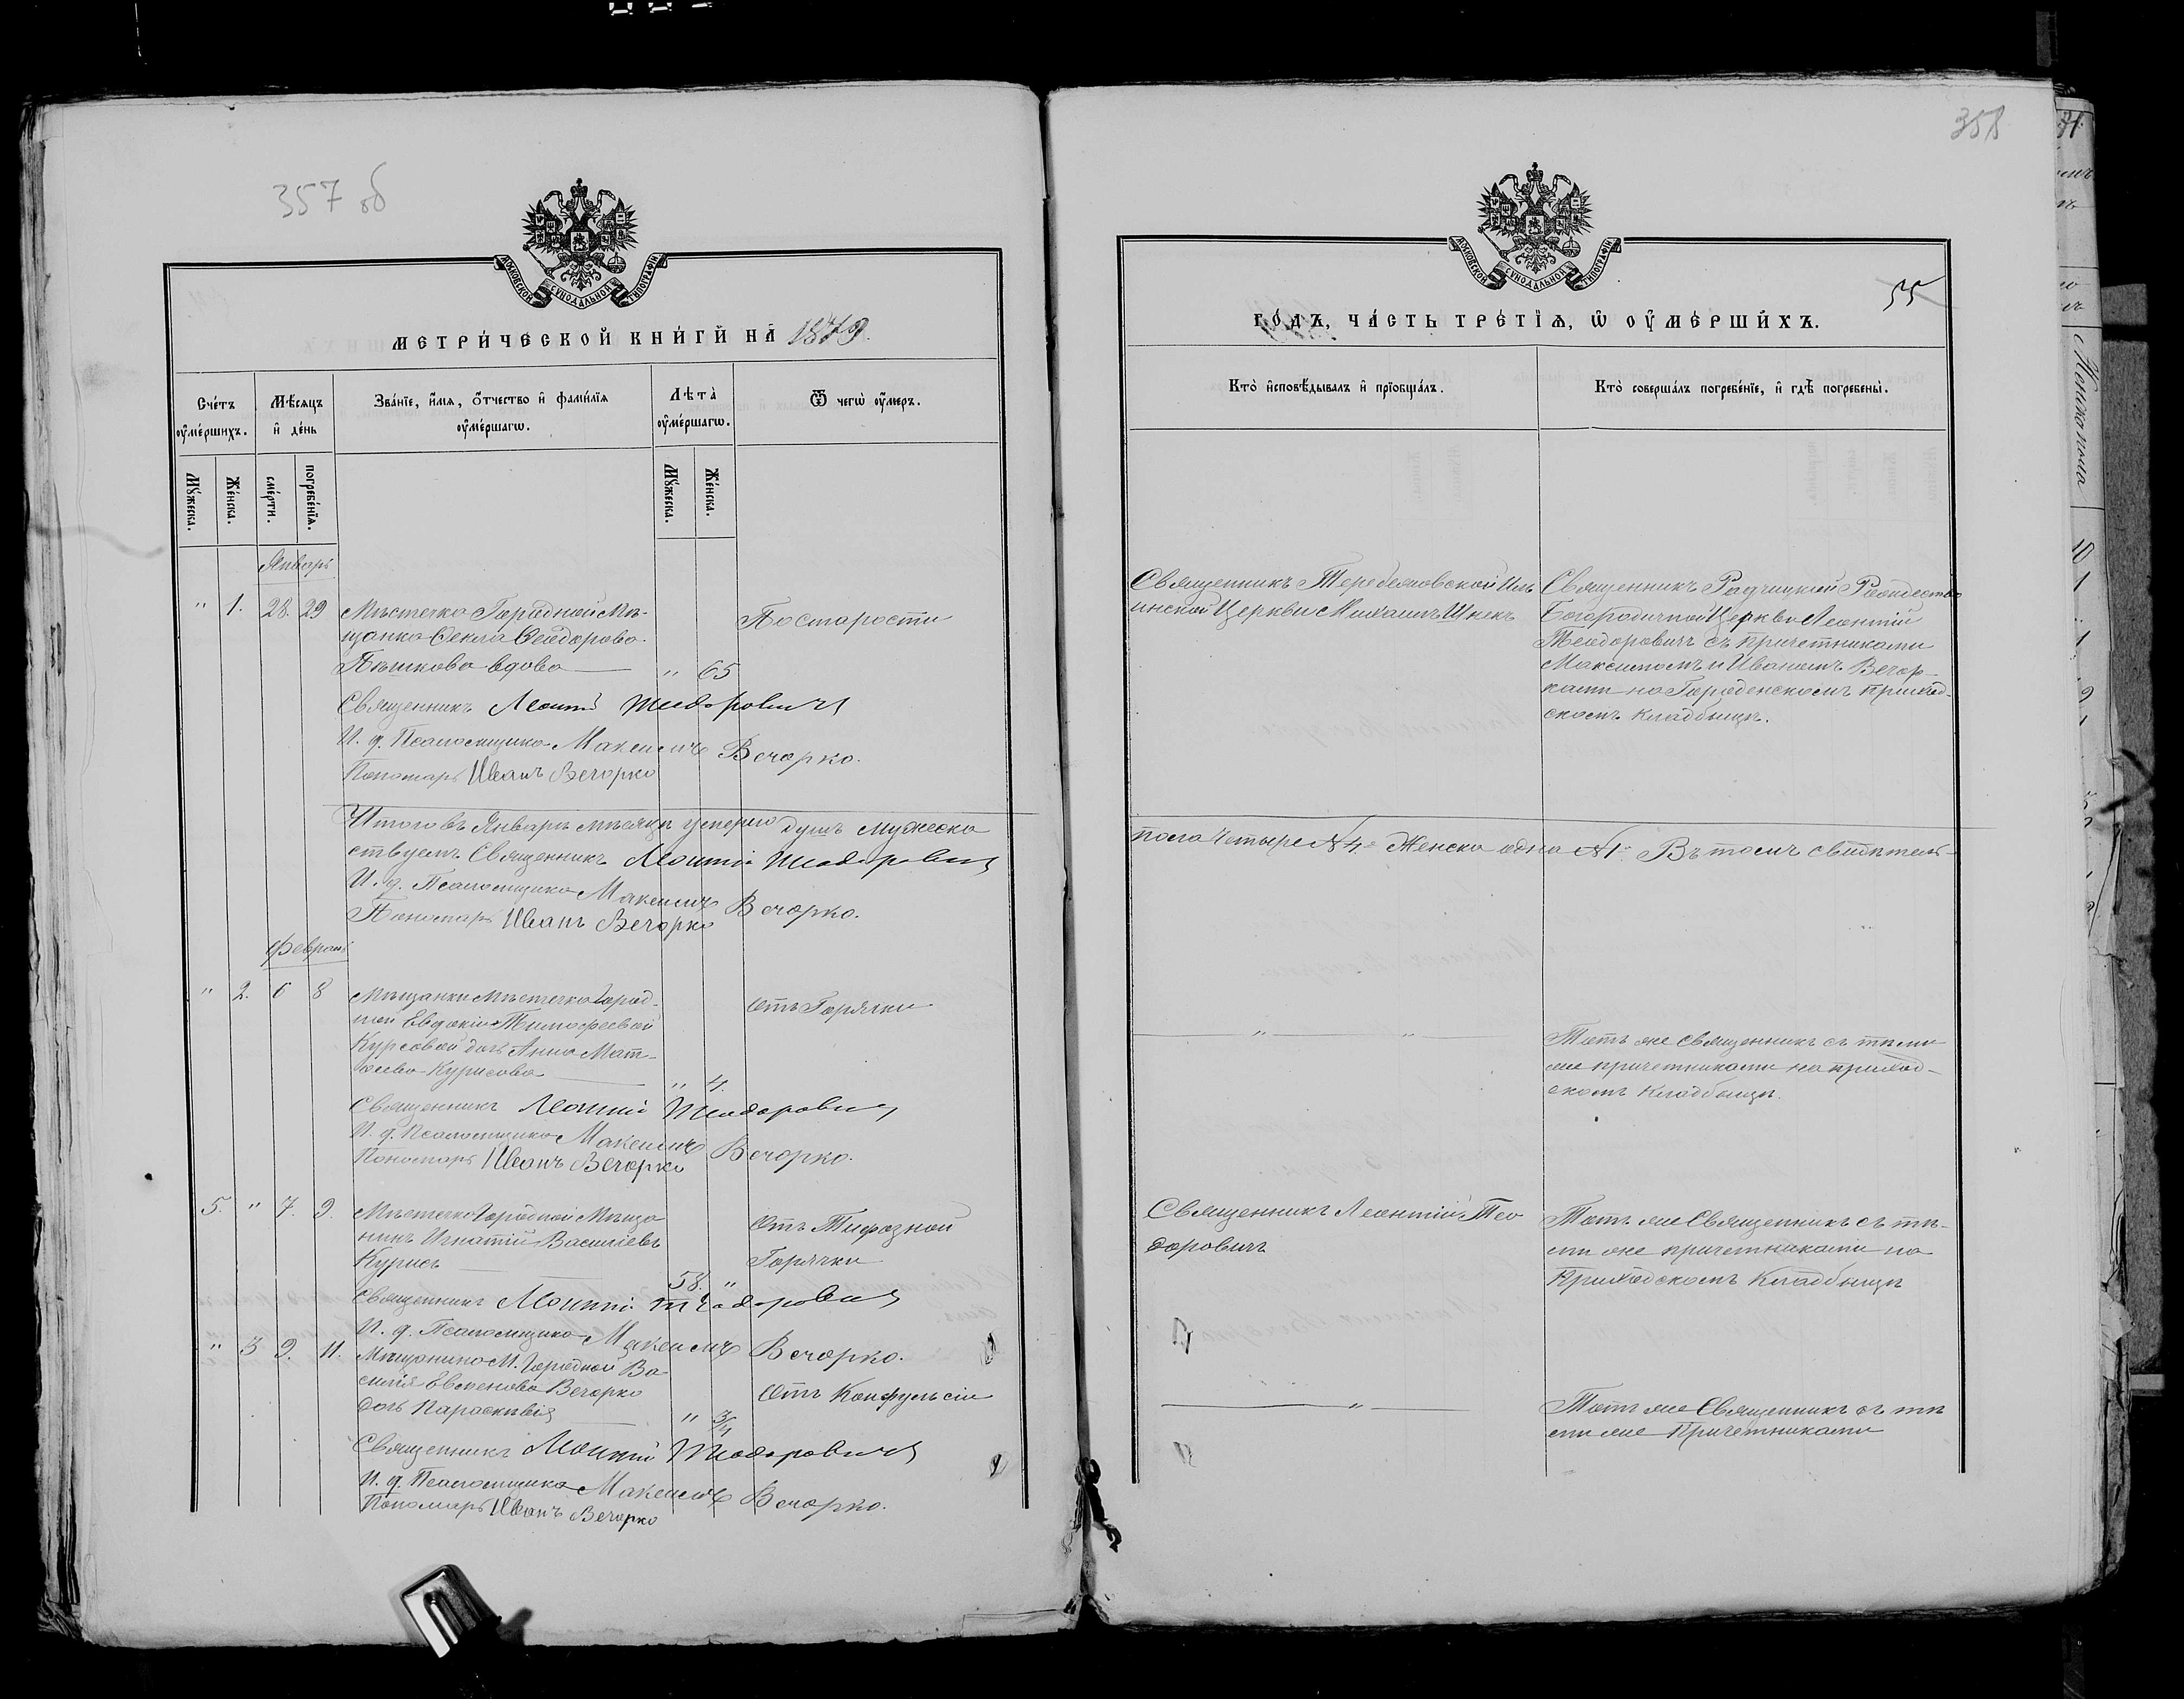 357 об
МОСКОВСКОЙ СУНОДАЛЬНОЙ ТИПОГРАФІИ
МЕТРИ́ЧЕСКОЙ КНИ́ГИ НА 1879.
Сче́тъ ᲂу҆ме́ршихъ.
Мѣ́сяцъ и҆ де́нь
Зва́нїе, и҆́мя, ѻ҆́тчество и҆ фами́лїя ᲂу҆ме́ршагѡ.
Лѣ́та ᲂу҆ме́ршагѡ.
Ѿ чегѡ̀ ᲂу҆́меръ.
Мꙋ́жеска.
Же́нска.
сме́рти.
погребе́нїѧ.
Мꙋ́жеска.
Же́нска.
Январь
" 1. 28. 29 Мѣстечка Городной Мѣ-
щанка Фекла Феодорова
вдова " 65
По старости
Священникъ Леонтій Теодоровичъ
И. д. Псаломщика Максимъ Вечорко.
Пономарь Иванъ Вечорко
Итого въ Январѣ мѣсяцѣ умерло душъ мужеска
ствуемъ Священникъ Леонтій Теодоровичъ
И. д. Псаломщика Максимъ Вечорко.
Пономарь Иванъ Вечорко
Февраль
" 2. 6 8 Мѣщанки Мѣстечка Город-
ной Евдокіи Тимофеевой
Курсовой дочь Анна Мат-
феева Курисова " 4.
Отъ Горячки
Священникъ Леонтій Теодоровичъ
И. д. Псаломщика Максимъ Вечорко.
Пономарь Иванъ Вечорко
5. " 7. 9. Мѣстечка Городной Мѣща
нинъ Игнатій Василіевъ
Курисъ 58. "
Отъ Тифозной
Горячки
Священникъ Леонтій Теодоровичъ
И. д. Псаломщика Максимъ Вечорко.
" 3 9. 11. Мѣщанина М. Городной Ва
силія Вечорко
дочь Параскевія " 3/4
Отъ Конфульсіи
Священникъ Леонтій Теодоровичъ
И. д. Псаломщика Максимъ Вечорко.
Пономарь Иванъ Вечорко
358
МОСКОВСКОЙ СУНОДАЛЬНОЙ ТИПОГРАФІИ
55
ГО́ДЪ, ЧА́СТЬ ТРЕ́ТЇѦ, Ѡ҆ ОУ҆МЕ́РШИХЪ.
Кто̀ и҆сповѣ́дывалъ и҆ прїобща́лъ.
Кто̀ соверша́лъ погребе́нїе, и҆ гдѣ̀ погребены̀.
Священникъ Теребежовской Иль
инской Церкви Михаилъ
Священникъ Радчицкой Рождество
Богородичной Церкви Леонтій
Теодоровичъ съ причетниками
Максимомъ и Иваномъ Вечор-
ками на Городенскомъ приход-
скомъ кладбищѣ.
пола четыре № 4. Женска одна № 1. Въ томъ свидѣтель-
" "
Тотъ же Священникъ съ тѣми
же причетниками на приход-
скомъ кладбищѣ.
Священникъ Леонтій Тео
доровичъ
Тотъ же Священникъ съ тѣ-
ми же причетниками на
Приходскомъ Кладбищѣ
"
Тотъ же Священникъ съ тѣ
ми же Причетниками